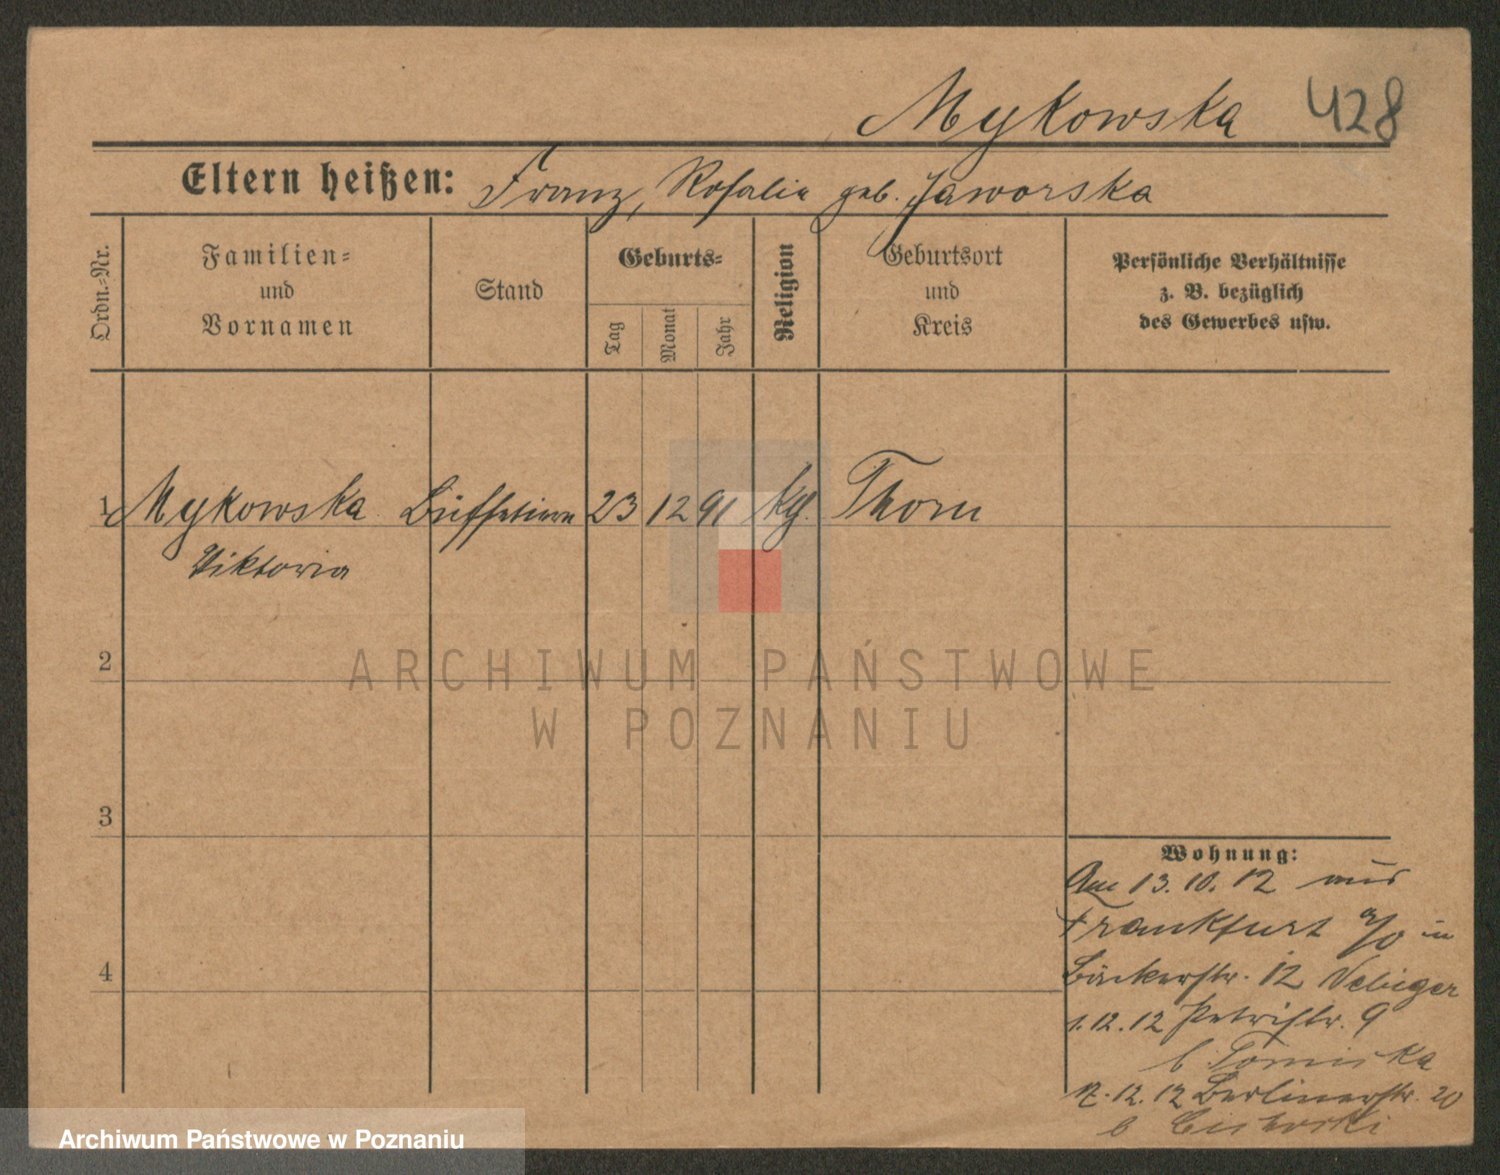 Mykowska 428
Eltern heißen: Franz, Rosalie geb. Jaworska
Ordn.-Nr.
Familien-
und
Vornamen
Stand
Geburts-
Tag
Monat
Jahr
Religion
Geburtsort
und
Kreis
Persönliche Verhältnisse
z. B. bezüglich
des Gewerbes usw.
1 Mykowska Büffetiere 23 12 91 kg. Thorn
Viktoria
2
3
4
ARCHIWUM PAŃSTWOWE
W POZNANIU
Wohnung:
Am 13.10.12 aus
Frankfurt a/O in
Bäckerstr. 12 Nebiger
1.12.12 Petristr. 9
b. Tomiska
12.12 Berlinerstr. 20
b
Archiwum Państwowe w Poznaniu